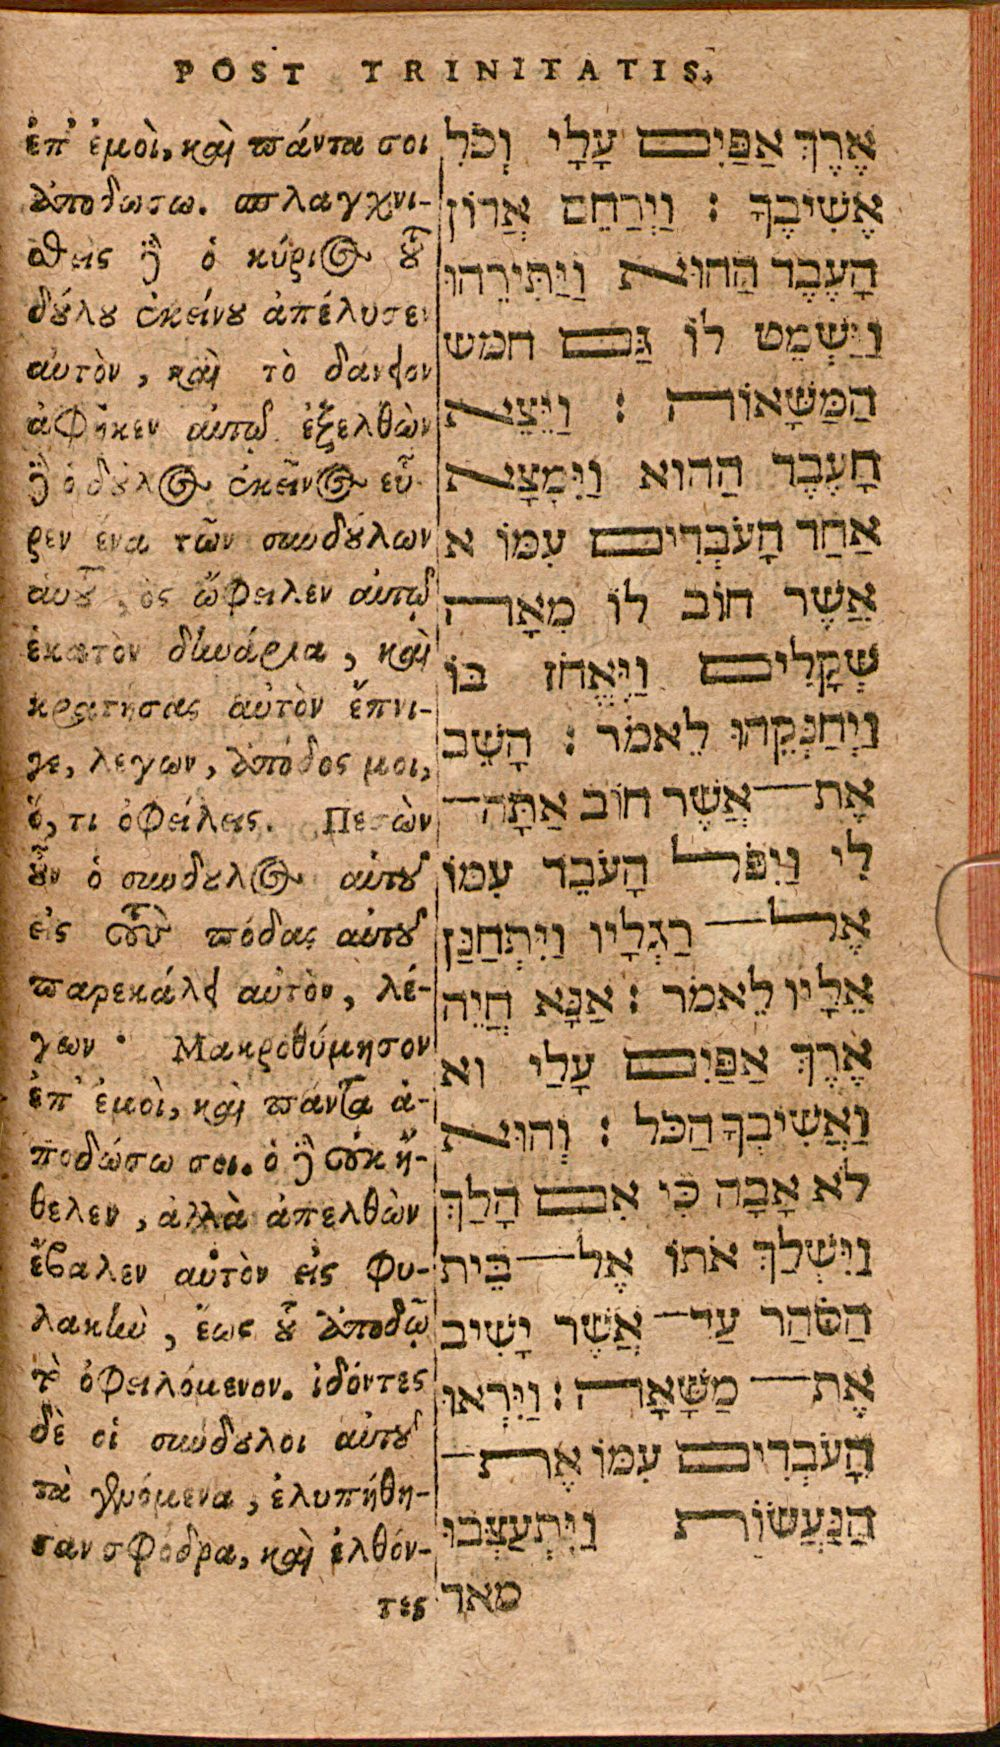 POST TRINITATIS.
ἐπ' ἐμοὶ, καὶ πάντα σοι
ἀποδώσω. σπλαγχνι-
σθεὶς δὲ ὁ κύριος τοῦ
δούλου ἐκείνου ἀπέλυσεν
αὐτὸν, καὶ τὸ δάνειον
ἀφῆκεν αὐτῷ ἐξελθὼν
δὲ ὁ δοῦλος ἐκεῖνος εὗ
ρεν ἕνα τῶν συνδούλων
αὐτοῦ, ὃς ὤφειλεν αὐτῷ
ἑκατὸν δηνάρια, καὶ
κρατήσας αὐτὸν ἔπνι-
γε, λέγων, ἀπόδος μοι,
ὅ, τι ὀφείλεις. Πεσὼν
οὖν ὁ συνδουλος αὐτοῦ
εἰς τοὺς πόδας αὐτοῦ
παρεκάλει αὐτὸν, λέ-
γων· Μακροθύμησον
ἐπ' ἐμοὶ, καὶ πάντα ἀ-
ποδώσω σοι. ὁ δὲ οὐκ ἤ-
θελεν, ἀλλὰ ἀπελθὼν
ἔβαλεν αὐτὸν εἰς φυ-
λακὴν, ἕως οὗ ἀποδῷ
τὸ ὀφειλόμενον. ἰδόντες
δὲ οἱ σύνδουλοι αὐτοῦ
τὰ γενόμενα, ἐλυπήθη-
σαν σφόδρα, καὶ ἐλθόν-
τες
אֶרֶךְ אַפַּיִם עָלָי וְכֹל
אֲשִׁיבֶךָ : וַיְרַחֵם אֲדוֹן
הָעֶבֶד הַהוּא וַיַּתִּירֵהוּ
וַיַּשְׁמֵט לוֹ גַּם חמש
הַמַּשָּׁאוֹת : וַיֵּצֵא
הָעֶבֶד הַהוּא וַיִּמְצָא
אַחַד הָעֹבְדִים עִמּוֹ א
אֲשֶׁר חוֹב לוֹ מֵאָה
שְׁקָלִים וַיֶּאֱחֹז בּוֹ
וַיְחַנְּקֵהוּ לֵאמֹר : הָשֵׁב
אֶת־אֲשֶׁר חוֹב אַתָּה־
לִי וַיִּפֹּל הָעֹבֵד עִמּוֹ
אֶל־רַגְלָיו וַיִּתְחַנַּן
אֵלָיו לֵאמֹר : אַנָּא הֱיֵה
אֶרֶךְ אַפַּיִם עָלַי וא
וַאֲשִׁיבְךָ הַכֹּל : וְהוּא
לֹא אָבָה כִּי אִם הָלַךְ
וַיִּשְׁלַךְ אֹתוֹ אֶל־בֵּית
הַסֹּהַר עַד־אֲשֶׁר יָשִׁיב
אֶת־מַשָּׁאָה : וַיִּרְאוּ
הָעֹבְדִים עִמּוֹ אֶת־
הַנַּעֲשׂוֹת וַיִּתְעַצְּבוּ
מאד